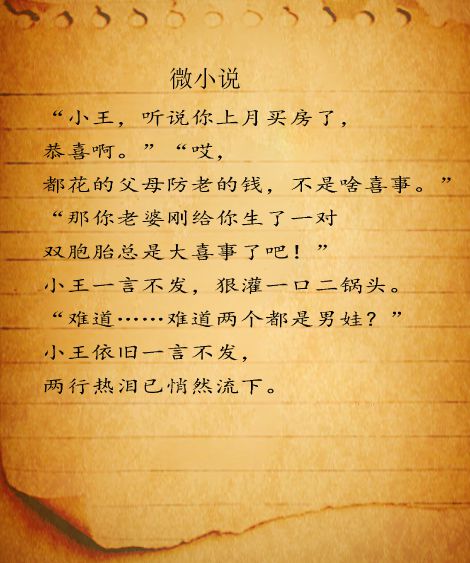 微小说
“小王，听说你上月买房了，
恭喜啊。”“哎，
都花的父母防老的钱，不是啥喜事。”
“那你老婆刚给你生了一对
双胞胎总是大喜事了吧！”
小王一言不发，狠灌一口二锅头。
“难道……难道两个都是男娃？”
小王依旧一言不发，
两行热泪已悄然流下。